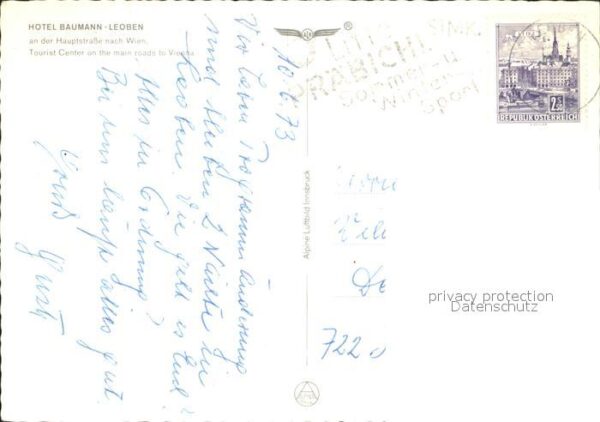 HOTEL BAUMANN · LEOBEN
an der Hauptstraße nach Wien,
Tourist Center on the main roads to Vienna
10.6.73
Programm Änderung
und bleiben 2 Nächte in
Leoben. Wie geht es Euch?
Alles in Ordnung?
Bei uns läuft alles gut.
Alpine Luftbild Innsbruck
PRÄBICHL
Sommer u
Winter
Sport
2.50
REPUBLIK ÖSTERREICH
722
privacy protection
Datenschutz